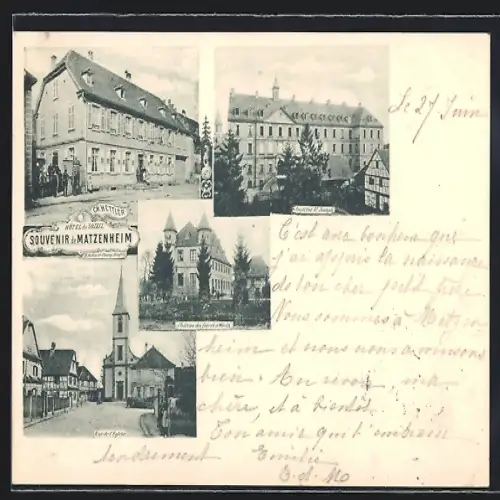 CH. HETTLER
HÔTEL du
SOUVENIR de MATZENHEIM
Institut St Joseph
Château des
Rue de l'Eglise
Le 27 Juin
C'est avec bonheur que
j'ai appris la naissance
de ton cher petit frère.
Nous sommes à Matzen-
heim et nous nous amusons
bien. Au revoir, ma
chère, et à bientôt
Ton amie qui t'embrasse
tendrement Emilie
E. d. M